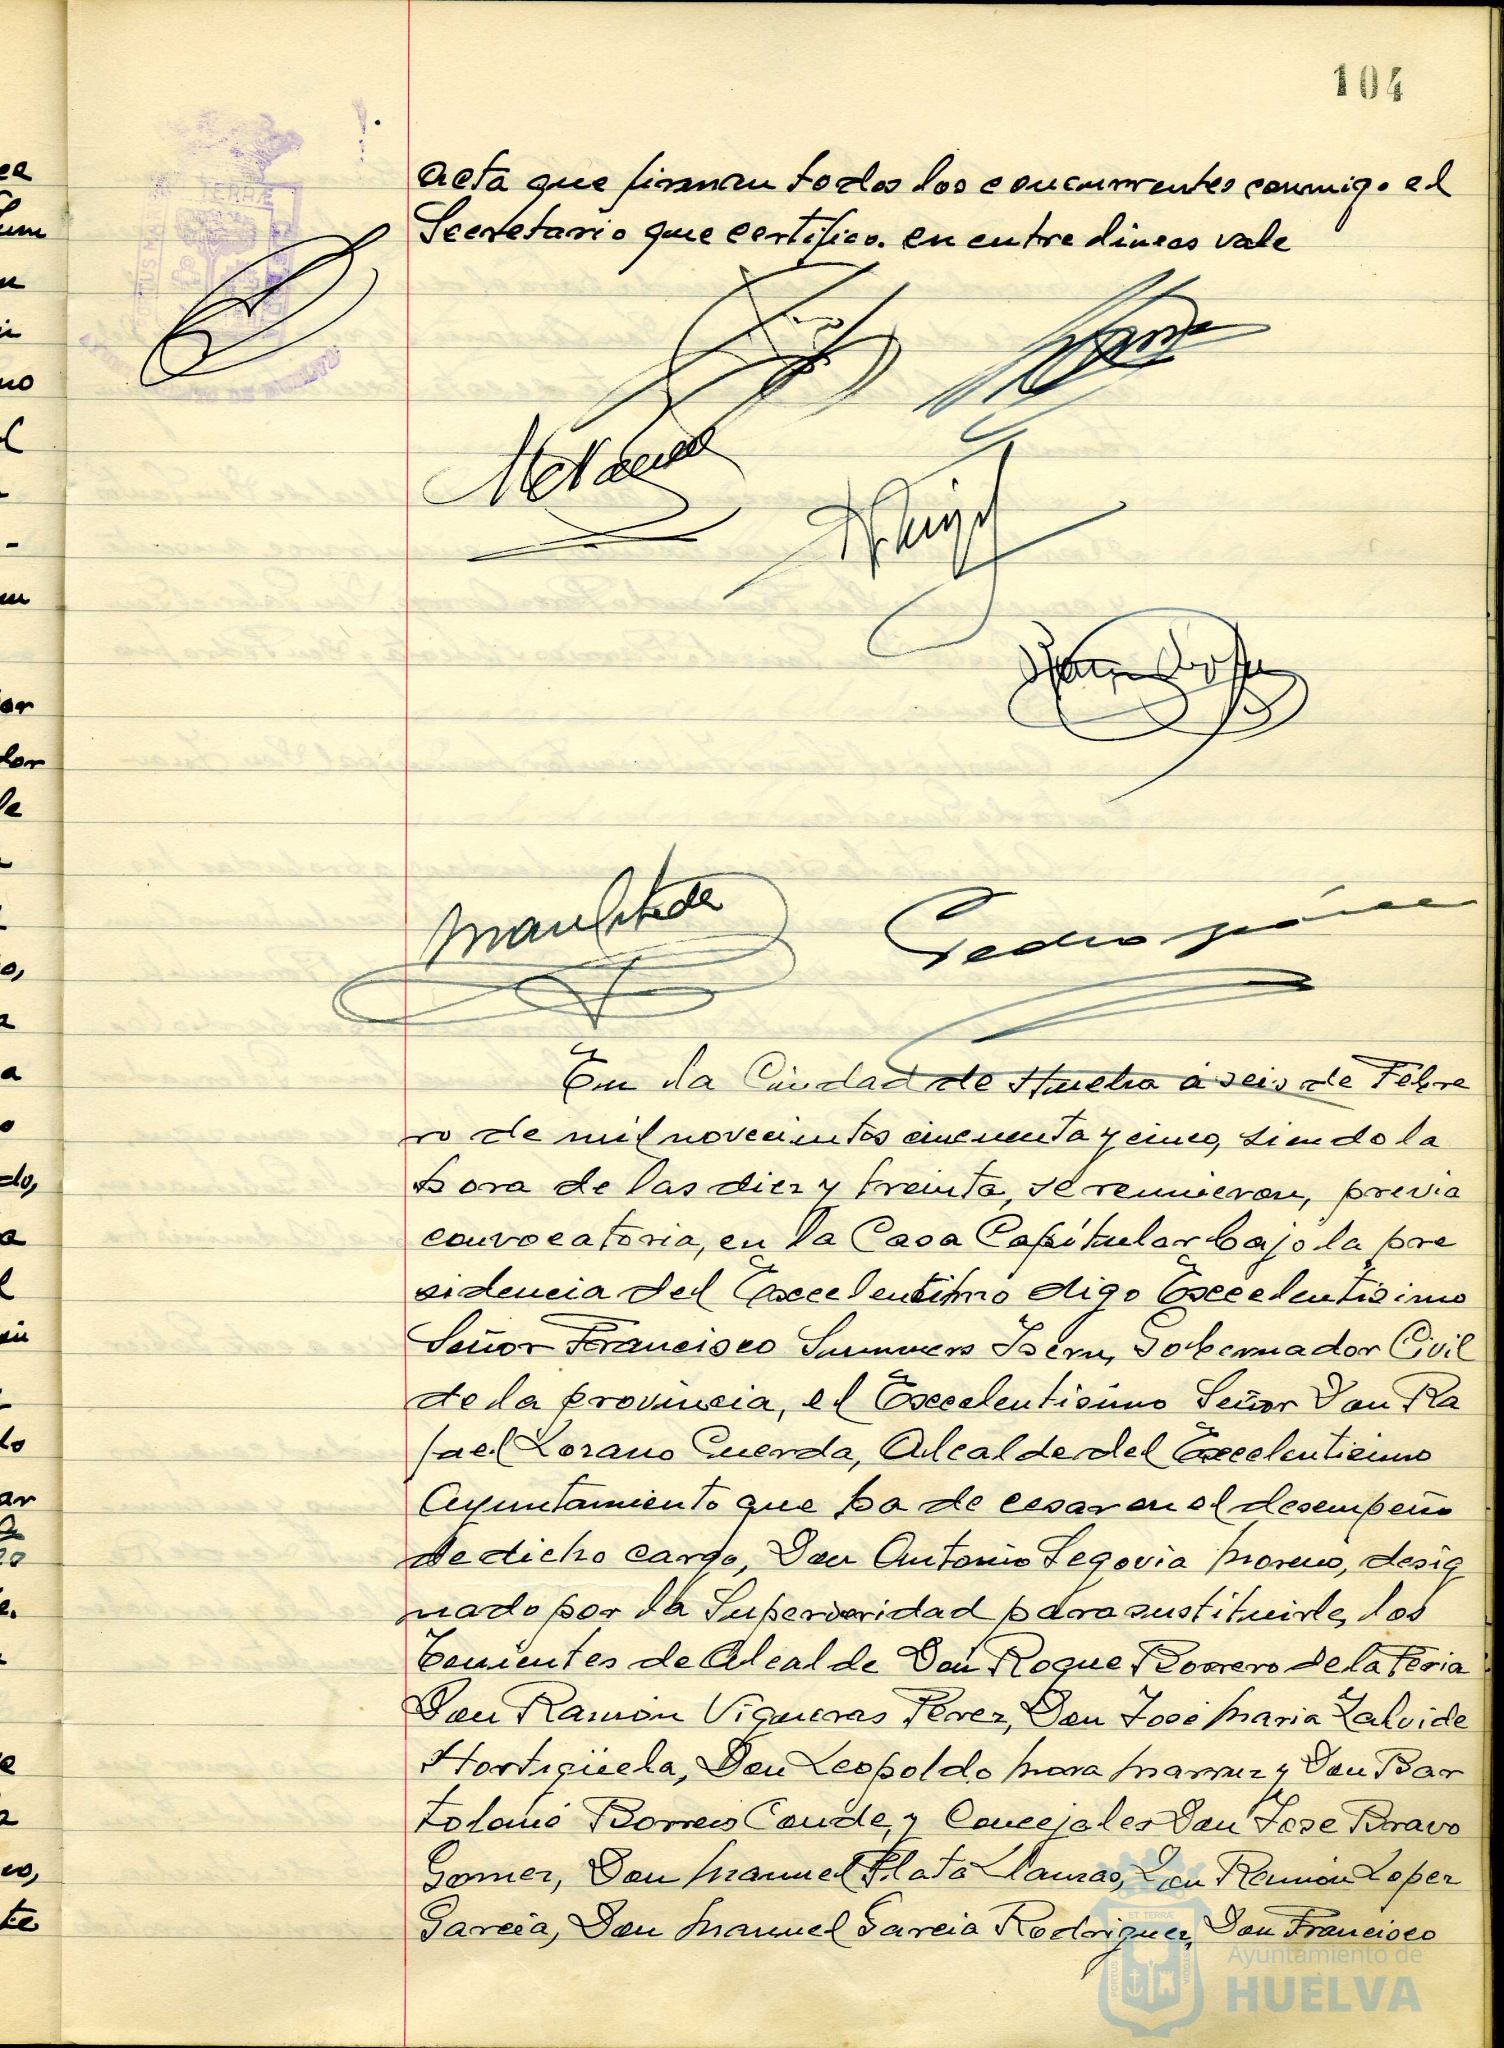 104
acta que firman todos los concurrentes conmigo el
Secretario que certifico. en entre lineas vale
En la Ciudad de Huelva á seis de Febre
ro de mil novecientos cincuenta y cinco, siendo la
hora de las diez y treinta, se reunieron, previa
convocatoria, en la Casa Capítular bajo la pre
sidencia del Excelentimo digo Excelentisimo
Señor Francisco Summers Isern, Gobernador Civil
de la provincia, el Excelentisimo Señor Don Ra
fael Lozano Cuerda, Alcalde del Excelentisimo
Ayuntamiento que ha de cesar en el desempeño
de dicho cargo, Don Antonio Segovia Moreno, desig
nado por la Superioridad para sustituirle, los
Tenientes de Alcalde Don Roque Borrero de la Feria
Don Ramón Vigueras Perez, Don José Maria Zalvide
Hortigüela, Don Leopoldo Mora y Don Bar
tolomé Borrero Conde, y Concejales Don Jose Bravo
Gomez, Don Manuel Plata Llamas, Don Ramón Lopez
Garcia, Don Manuel Garcia Rodriguez, Don Francisco
Ayuntamiento de
HUELVA